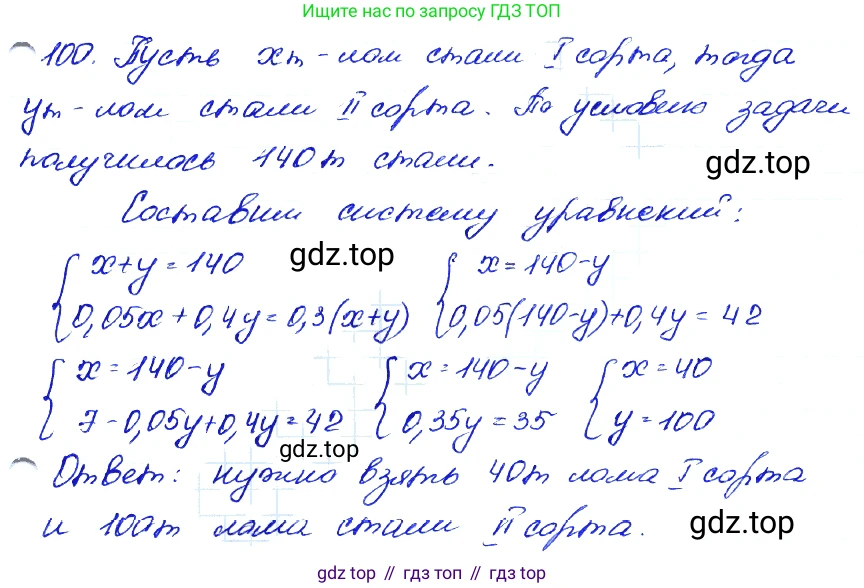 Ищите нас по запросу ГДЗ ТОП
100. Пусть xт - лом стали I сорта, тогда
yт - лом стали II сорта. По условию задачи
получилось 140т стали.
gdz.top
Составим систему уравнений:
{ x+y=140 gdz.top { x=140-y
{ 0,05x+0,4y=0,3(x+y) { 0,05(140-y)+0,4y=42
{ x=140-y { x=140-y { x=40
{ 7-0,05y+0,4y=42 { 0,35y=35 { y=100
gdz.top
Ответ: нужно взять 40т лома I сорта
и 100т лома стали II сорта.
gdz.top
gdz.top // гдз топ // gdz.top